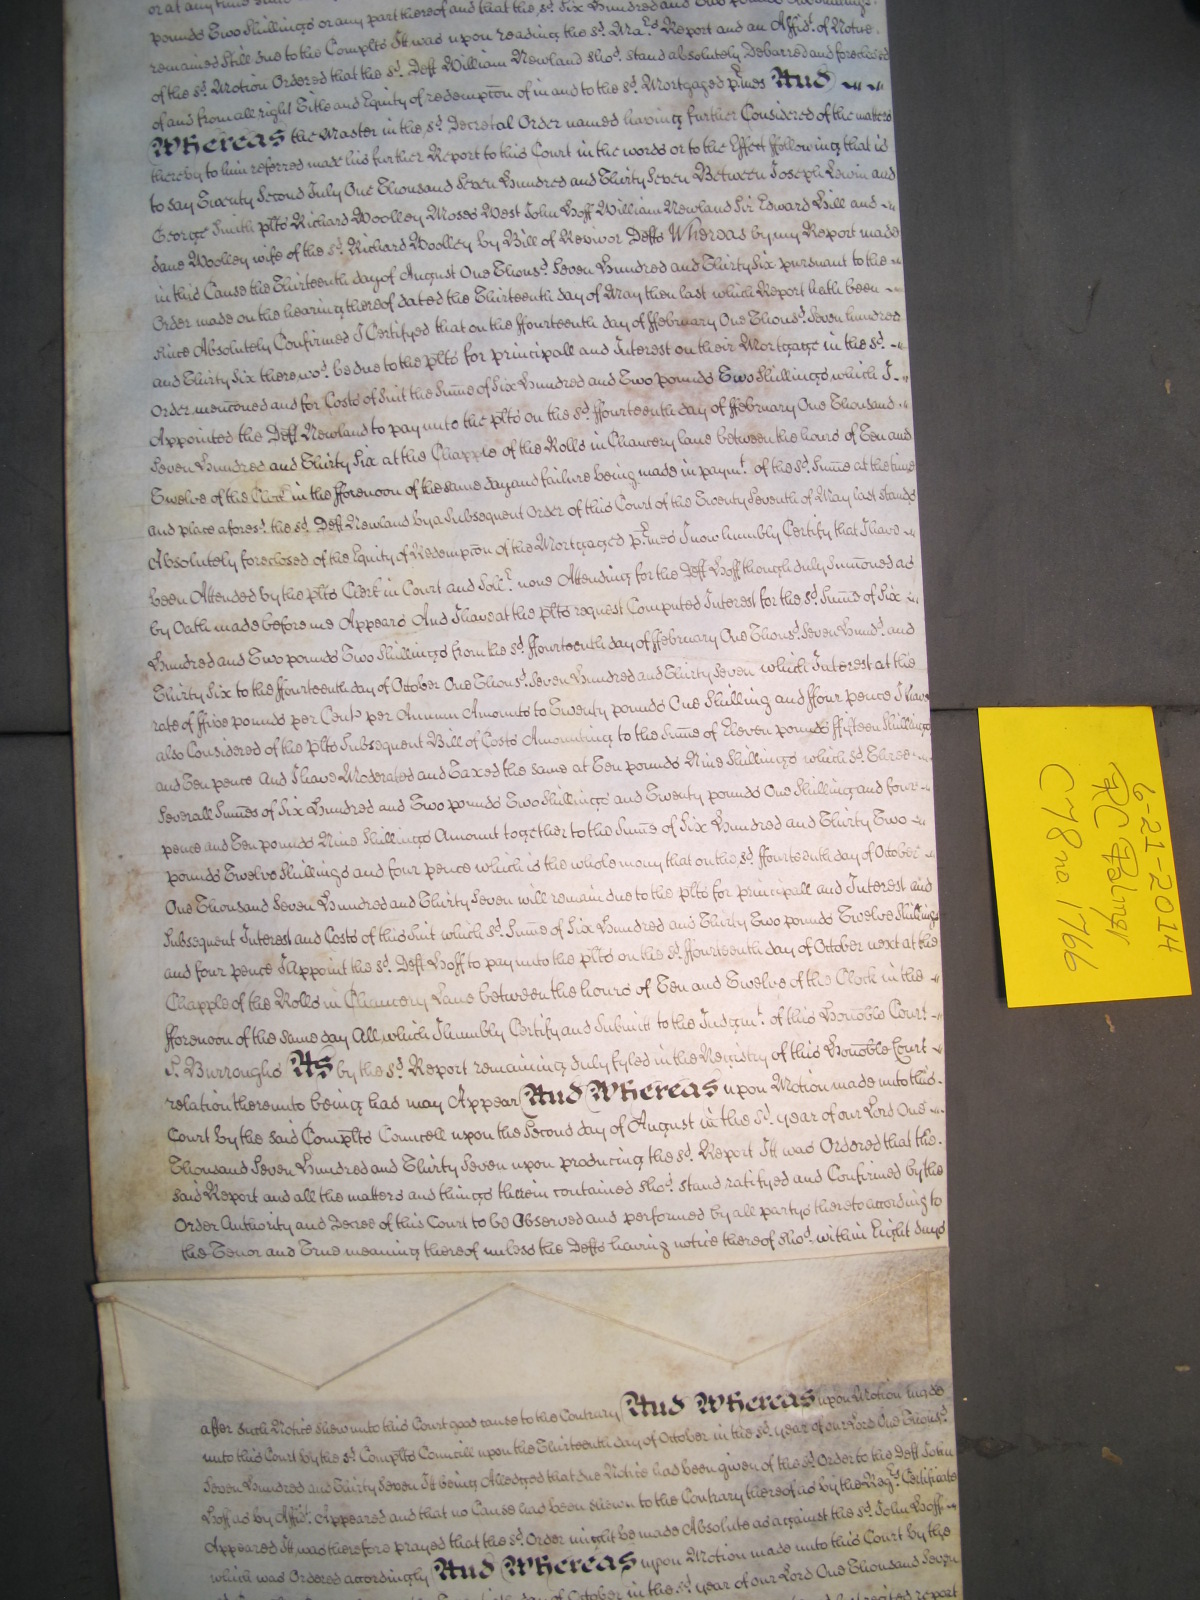 or at any time
pounds Two Shillings or any part thereof and that the sd. Six Hundred and Two pounds Two Shillings
remained Still due to the Complts It was upon reading the sd. Mars. Report and an Affidt. of Notice
of the sd. Motion Ordered that the sd. Deft William Newland shod. stand absolutely Debarred and foreclosed
of and from all right Title and Equity of redempcon of in and to the sd. Mortgaged prmes And
Whereas the Master in the sd. Decretal Order named having further Considered of the matters
thereby to him referred made his further Report to this Court in the words or to the Effect following that is
to say Twenty Second July One Thousand Seven Hundred and Thirty Seven Between Joseph Lewin and
George Smith plts Richard Woolley Moses West John Hoff William Newland Sir Edward Hill and
Jane Woolley wife of the sd. Richard Woolley by Bill of Revivor Defts Whereas by my Report made
in this Cause the Thirteenth day of August One Thousd. Seven Hundred and Thirty Six pursuant to the
Order made on the hearing thereof dated the Thirteenth day of May then last which Report hath been
since Absolutely Confirmed I Certifyed that on the ffourteenth day of ffebruary One Thousd. Seven hundred
and Thirty Six there wod. be due to the plts for principall and Interest on their Mortgage in the sd.
Order mencioned and for Costs of Suit the Sume of Six Hundred and Two pounds Two Shillings which I
Appointed the Deft Newland to pay unto the plts on the sd. ffourteenth day of ffebruary One Thousand
Seven Hundred and Thirty Six at the Chapple of the Rolls in Chancery lane between the hours of Ten and
Twelve of the Clock in the fforenoon of the same day and failure being made in paymt. of the sd. Sume at the time
and place aforesd. the sd. Deft Newland by a Subsequent Order of this Court of the Twenty Seventh of May last stands
Absolutely foreclosed of the Equity of Redempcon of the Mortgaged prmes I now humbly Certify that I have
been Attended by the plts Clerk in Court and Sollr. none Attending for the Deft Hoff though duly Sumoned as
by Oath made before me Appears And I have at the plts request Computed Interest for the sd. Sume of Six
Hundred and Two pounds Two Shillings from the sd. ffourteenth day of ffebruary One Thousd. Seven Hundd. and
Thirty Six to the ffourteenth day of October One Thousd. Seven Hundred and Thirty Seven which Interest at the
rate of ffive pounds per Cent per Annum Amounts to Twenty pounds One Shilling and ffour pence I have
also Considered of the plts Subsequent Bill of Costs Amounting to the Sume of Eleven pounds ffifteen Shillings
and Ten pence And I have Moderated and Taxed the same at Ten pounds Nine Shillings which sd. Three
Severall Sumes of Six Hundred and Two pounds Two Shillings and Twenty pounds One Shilling and four
pence and Ten pounds Nine Shillings Amount together to the Sume of Six Hundred and Thirty Two
pounds Twelve Shillings and four pence which is the whole mony that on the sd. ffourteenth day of October
One Thousand Seven Hundred and Thirty Seven will remain due to the plts for principall and Interest and
Subsequent Interest and Costs of this Suit which sd. Sume of Six Hundred and Thirty Two pounds Twelve Shillings
and four pence I Appoint the sd. Deft Hoff to pay unto the plts on the sd. ffourteenth day of October next at the
Chapple of the Rolls in Chancery Lane between the hours of Ten and Twelve of the Clock in the
fforenoon of the same day All which I humbly Certify and Submitt to the Judgmt. of this Honoble Court
S. Burroughs As by the sd. Report remaining duly fyled in the Registry of this Honoble Court
relation thereunto being had may Appear And Whereas upon Motion made unto this
Court by the said Complts Councell upon the Second day of August in the sd. year of our Lord One
Thousand Seven Hundred and Thirty Seven upon producing the sd. Report Itt was Ordered that the
said Report and all the matters and things therein contained shod. stand ratifyed and Confirmed by the
Order Authority and Decree of this Court to be Observed and performed by all partys thereto according to
the Tenor and True meaning thereof unless the Defts having notice thereof shod. within Eight days
after such Notice shew unto this Court good cause to the Contrary And Whereas upon Motion made
unto this Court by the sd. Complts Councill upon the Thirteenth day of October in the sd. year of our Lord One Thousd.
Seven Hundred and Thirty Seven It being Alledged that due Notice had been given of the sd. Order to the Deft John
Hoff as by Affidt. Appeared and that no Cause had been shewn to the Contrary thereof as by the Regrs Certificate
Appeared It was therefore prayed that the sd. Order might be made Absolute as against the sd. John Hoff
which was Ordered accordingly And Whereas upon Motion made unto this Court by the
day of October in the sd. year of our Lord One Thousand Seven
report
6-21-2014
RC Palmer
C78 no. 1766